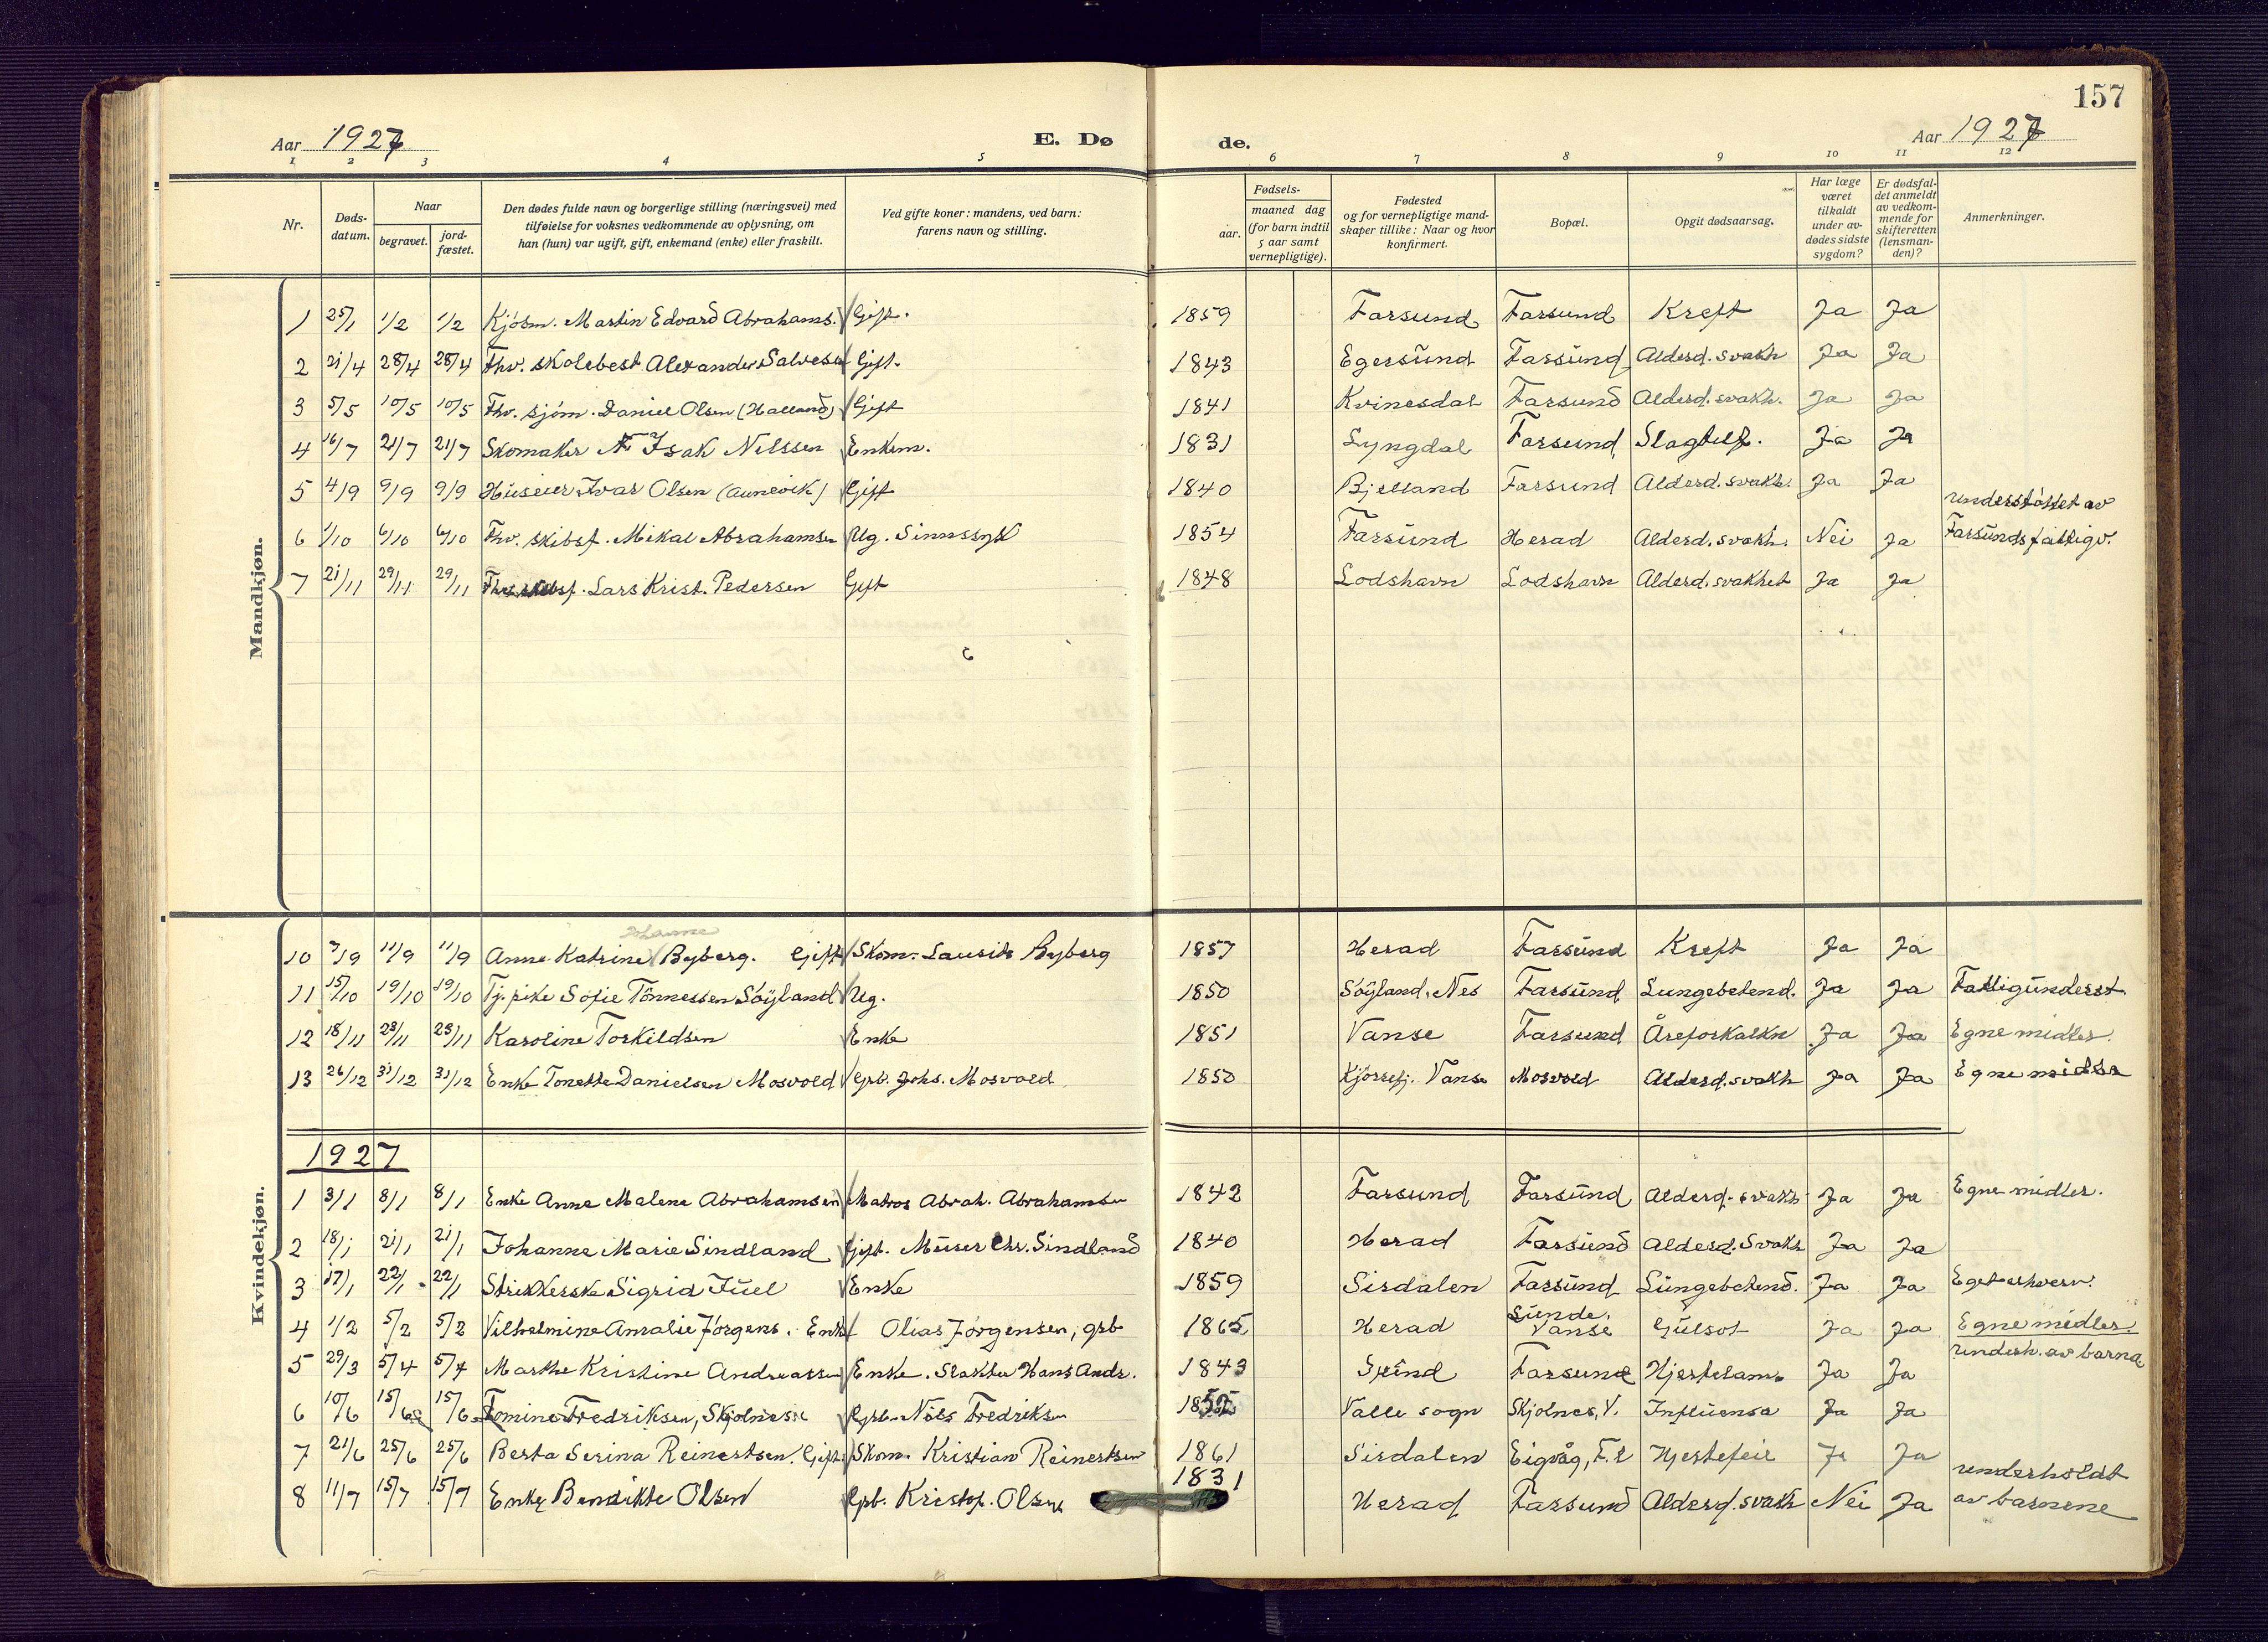 157
Aar 1927 E. Dø de. Aar 1927
1 2 3 4 5 6 7 8 9 10 11 12
Nr. Døds-datum. Naar begravet. jord-fæstet. Den dødes fulde navn og borgerlige stilling (næringsvei) med tilføielse for voksnes vedkommende av oplysning, om han (hun) var ugift, gift, enkemand (enke) eller fraskilt. Ved gifte koner: mandens, ved barn: farens navn og stilling. Fødsels- aar. maaned dag (for barn indtil 5 aar samt vernepligtige). Fødested og for vernepligtige mand-skaper tillike: Naar og hvor konfirmert. Bopæl. Opgit dødsaarsag. Har læge været tilkaldt under av-dødes sidste sygdom? Er dødsfal-det anmeldt av vedkom-mende for skifteretten (lensman-den)? Anmerkninger.
Mandkjøn.
1 25/1 1/2 1/2 Kjøsm. Martin Edvard Abrahams. Gift. 1859 Farsund Farsund Kreft Ja Ja
2 21/4 28/4 28/4 Fhv. skolebest Alexander Salvesen Gift. 1843 Egersund Farsund Alderd. svakh Ja Ja
3 5/5 10/5 10/5 Fhv. sjøm. Daniel Olsen (Halland) Gift 1841 Kvinesdal Farsund Alderd. svakh. Ja Ja
4 16/7 21/7 21/7 Skomaker Isak Nilssen Enkem. 1831 Lyngdal Farsund Slagtilf. Ja Ja
5 4/9 9/9 9/9 Huseier Ivar Olsen (Aunevik) Gift 1840 Bjelland Farsund Alderd. svakh. Ja Ja
6 1/10 6/10 6/10 Fhv. skibsf. Mikal Abrahamsen Ug. Sinnssyk 1854 Farsund Herad Alderd. svakh. Nei Ja understøttet av Farsunds fattigv.
7 21/11 29/11 29/11 Fhv. skibsf. Lars Krist. Pedersen Gift 1848 Lodshavn Lodshavn Alderd. svakhet Ja Ja
Kvindekjøn.
Johanne
10 7/9 11/9 11/9 Anne Katrine Byberg. Gift Skom. Lausits Byberg 1857 Herad Farsund Kreft Ja Ja
11 15/10 19/10 19/10 Tj. pike Sofie Tønnessen Søyland Ug. 1850 Søyland, Nes Farsund Lungebetend. Ja Ja Fattigunderst.
12 18/11 23/11 23/11 Karoline Torkildsen Enke 1851 Vanse Farsund Åreforkalkn Ja Ja Egne midler.
13 26/12 31/12 31/12 Enke Tonette Danielsen Mosvold Grb. Johs. Mosvold 1850 Vanse Mosvold Alderd. svakh Ja Ja Egne midler
1927
1 3/1 8/1 8/1 Enke Anne Malene Abrahamsen Matros Abrah. Abrahamsen 1842 Farsund Farsund Alderd. svakh Ja Ja Egne midler.
2 18/1 21/1 21/1 Johanne Marie Sindland Gift. Murer Chr. Sindland 1840 Herad Farsund Alderd. svakh Ja Ja
3 17/1 22/1 22/1 Strikkerske Sigrid Juel Enke 1859 Sirdalen Farsund Lungebetend. Ja Ja Eget erhverv.
4 1/2 5/2 5/2 Vilhelmine Amalie Jørgens. Enke Olias Jørgensen, grb 1865 Herad Sunde, Vanse Gulsot Ja Ja Egne midler.
5 29/3 5/4 5/4 Marthe Kristine Andreassen Enke. Slakter Hans Andr. 1843 Spind Farsund Hjertelam. Ja Ja underh. av barna
6 10/6 15/6 15/6 Tomine Fredriksen, Skjolnes Grb. Nils Fredriksen Valle sogn Skjolnes, V. Influensa Ja Ja
7 21/6 25/6 25/6 Berta Serina Reinertsen. Gift Skom. Kristian Reinertsen 1861 Sirdalen Eigvåg, Hjertefeil Ja Ja
8 11/7 15/7 15/7 Enke Bendikte Olsen Grb. Kristof. Olsen 1831 Herad Farsund Alderd. svakh Nei Ja underholdt av barnene